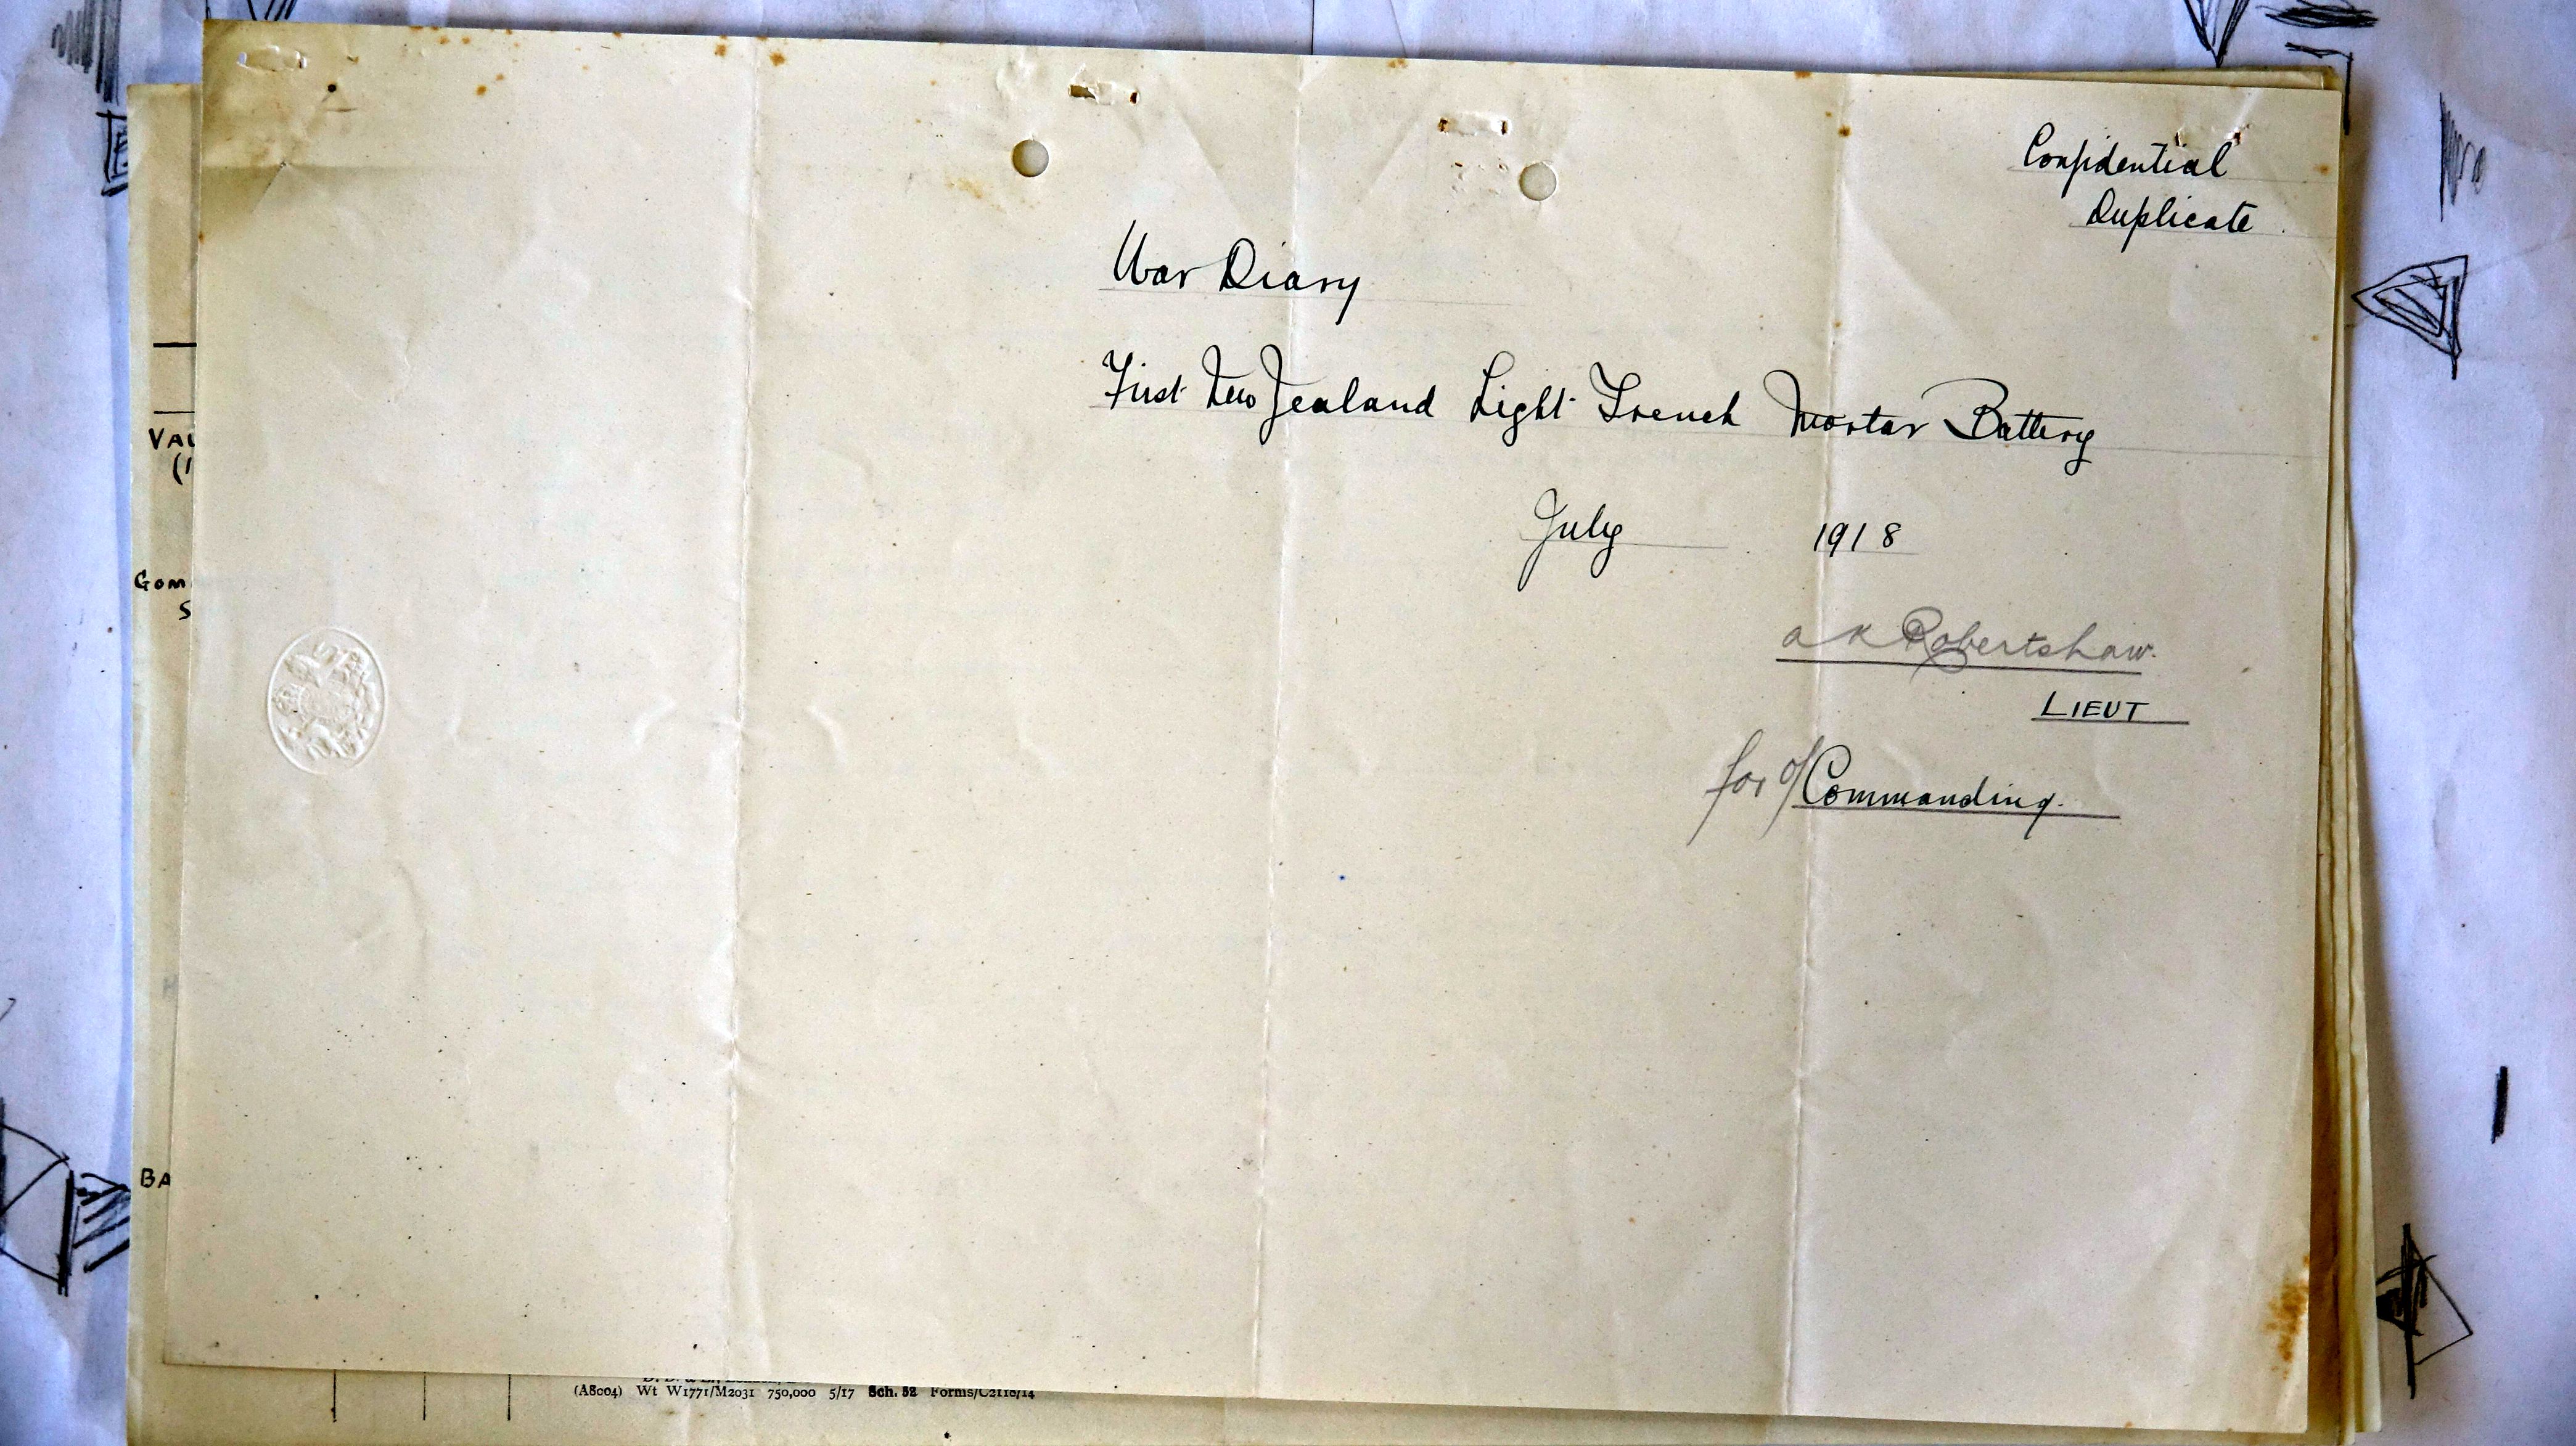 Confidential
Duplicate
War Diary
First New Zealand Light Trench Mortar Battery
July 1918
a K Robertshaw.
LIEUT
for o/Commanding.
VAL
(1
GOM
S
BA
(A8004) Wt W1771/M2031 750,000 5/17 Sch. 52 Forms/C2118/14